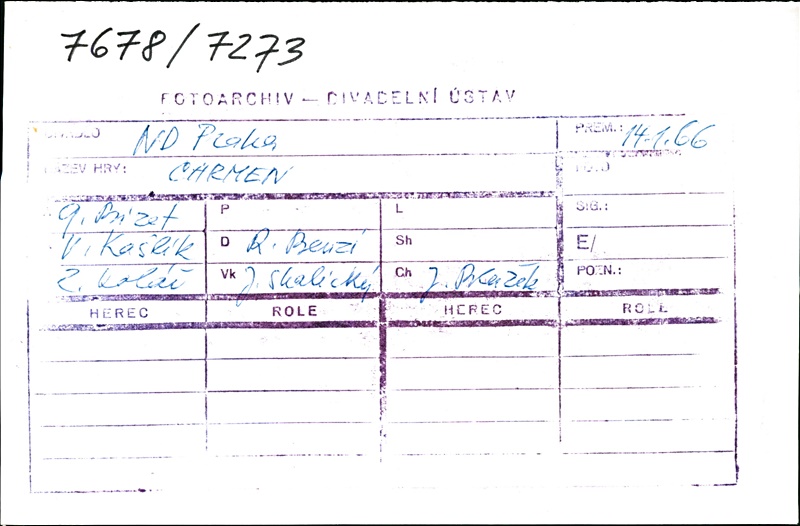 7678/7273
FOTOARCHIV — DIVADELNÍ ÚSTAV
DIVADLO ND Praha PREM.: 14.1.66
NÁZEV HRY: CARMEN
G. Bizet P L SIG.:
V. Kašlík D R. Benzi Sh E/
Z. Kolář Vk J. Skalický Ch J. Blažek POZN.:
HEREC ROLE HEREC ROLE